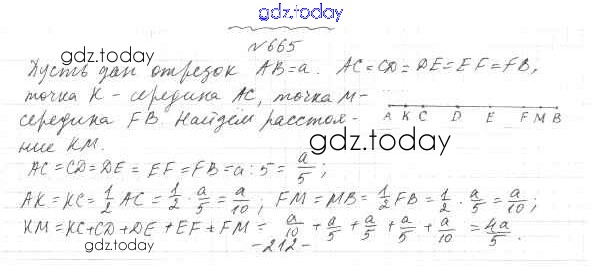 gdz.today
№665
gdz.today
Пусть дан отрезок AB=a. AC=CD=DE=EF=FB,
точка K - середина AC, точка M-
середина FB. Найдём расстоя-
A K C D E F M B
gdz.today
ние KM.
AC=CD=DE=EF=FB=a:5=a/5;
AK=KC=1/2 AC=1/2·a/5=a/10; FM=MB=1/2 FB=1/2·a/5=a/10;
KM=KC+CD+DE+EF+FM=a/10+a/5+a/5+a/5+a/10=4a/5.
gdz.today
-212-